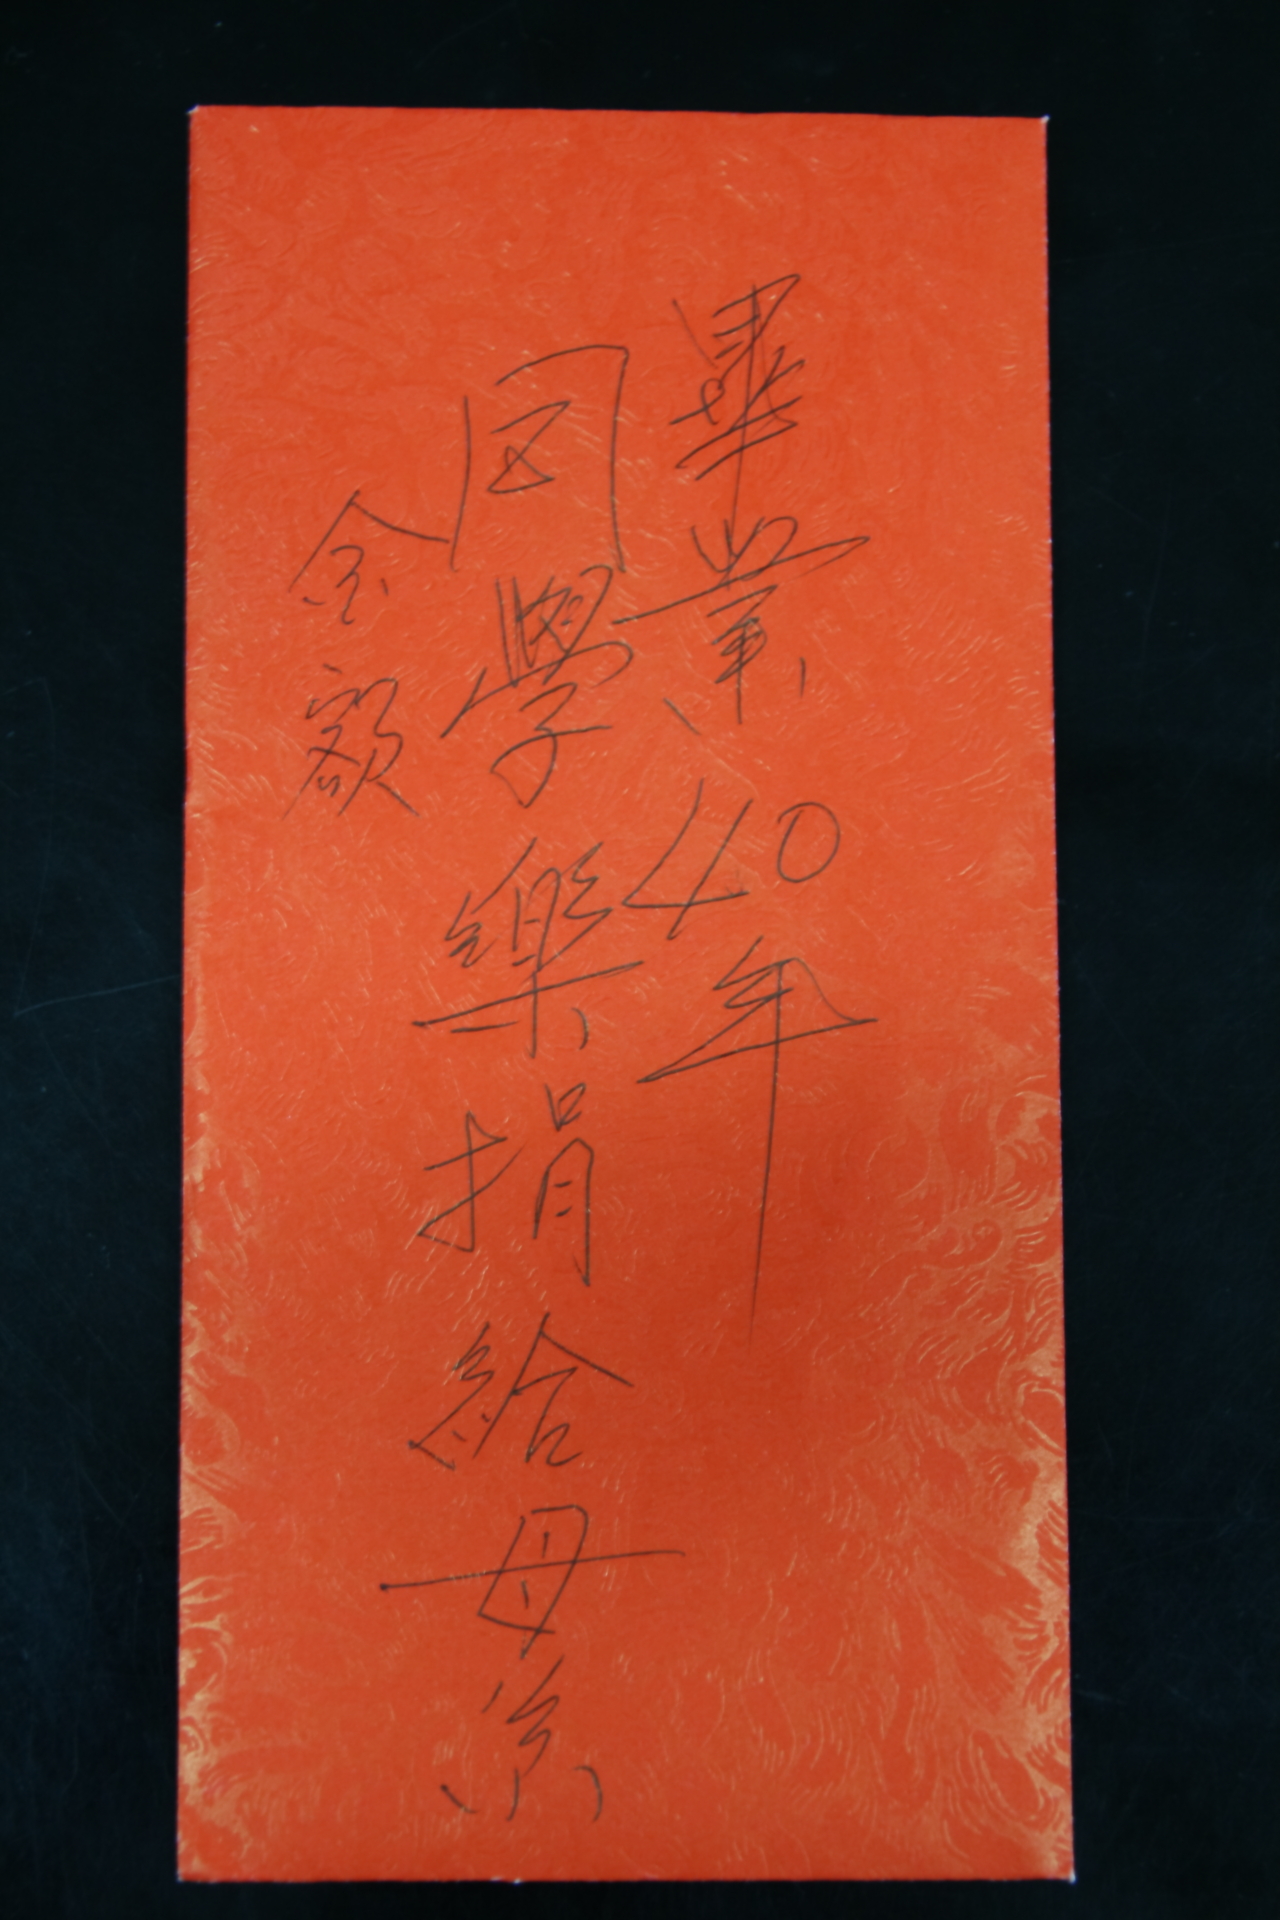 畢業40年
同學樂捐給母系
金額